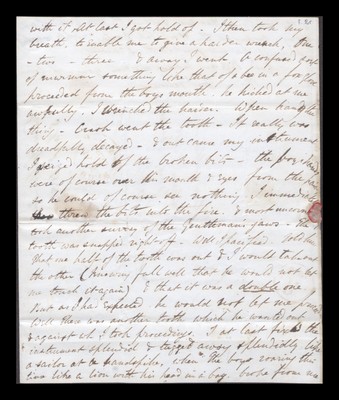 with it. At last I got hold of - I then took my
breath, to enable me to give a hard wrench, One
- two - three & away I went A confused sort
of murmur something like that of a bee in a fox
proceeded from the boy's mouth, he kicked at me
awfully. I wrenched the harder. When hang the
thing - Crash went the tooth - It really was
dreadfully decayed - & out came my instrument
I seized hold of the broken bits - the boy's hands
were of course over his mouth & eyes from the pain
so he could of course see nothing I immediately
threw the bits into the fire. & most
took another survey of the Gentlemans jaws - the
tooth was snapped right off. Well I pacified told
that one half of the tooth was out & I would take out
the other (knowing full well that he would not let
me touch it again) & that it was a double one
But as I had expected he would not let me
Well there was another tooth which he wanted out
& against wh I took proceedings. I at last fixed the
instrument splendid & tugged away splendidly like
a sailor at a handspike, when the boy roaring this
time like a lion with his head in a bag broke from me